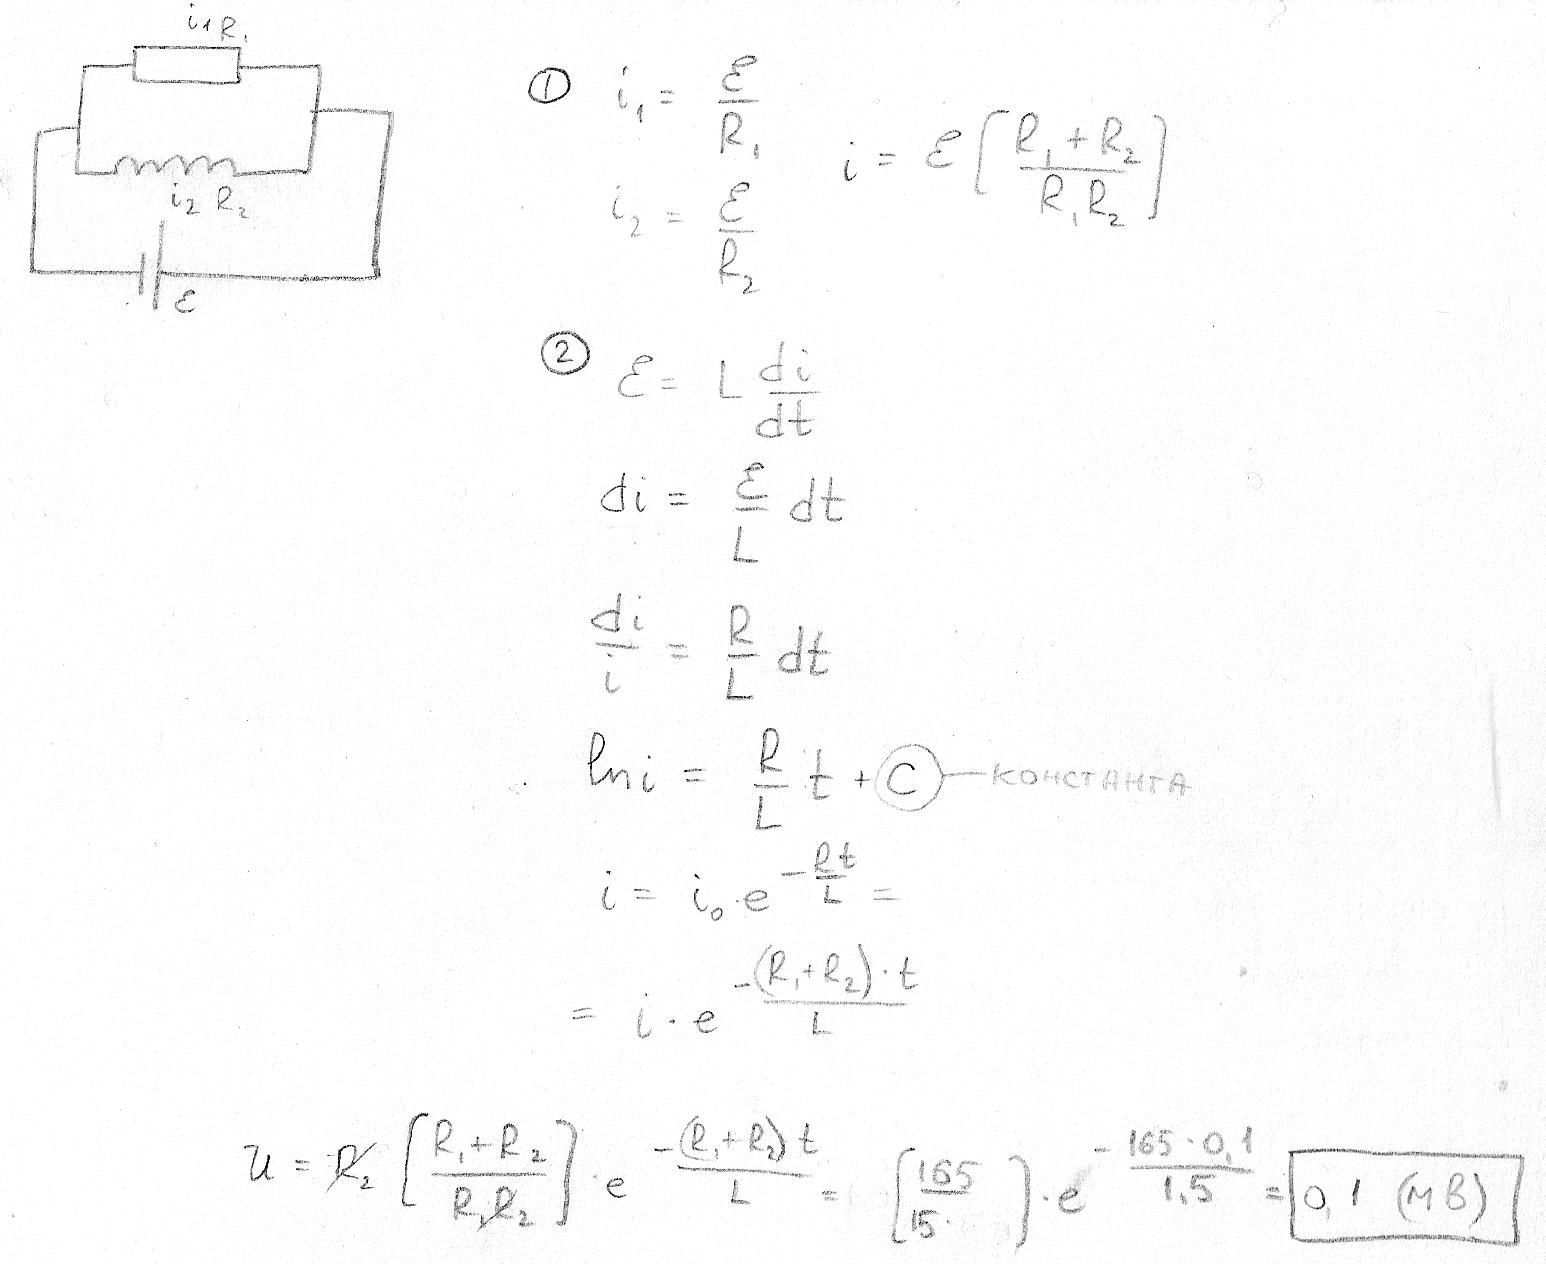 i₁ R₁
i₂ R₂
ℰ
① i₁ = ℰ/R₁
i₂ = ℰ/R₂
i = ℰ[(R₁+R₂)/(R₁R₂)]
② ℰ = L di/dt
di = ℰ/L dt
di/i = R/L dt
ln i = R/L t + C — КОНСТАНТА
i = i₀·e^(-Rt/L) =
= i·e^(-(R₁+R₂)·t/L)
u = R₂[(R₁+R₂)/(R₁R₂)]·e^(-(R₁+R₂)t/L) = [165/15.]·e^(-165·0,1/1,5) = 0,1 (мВ)